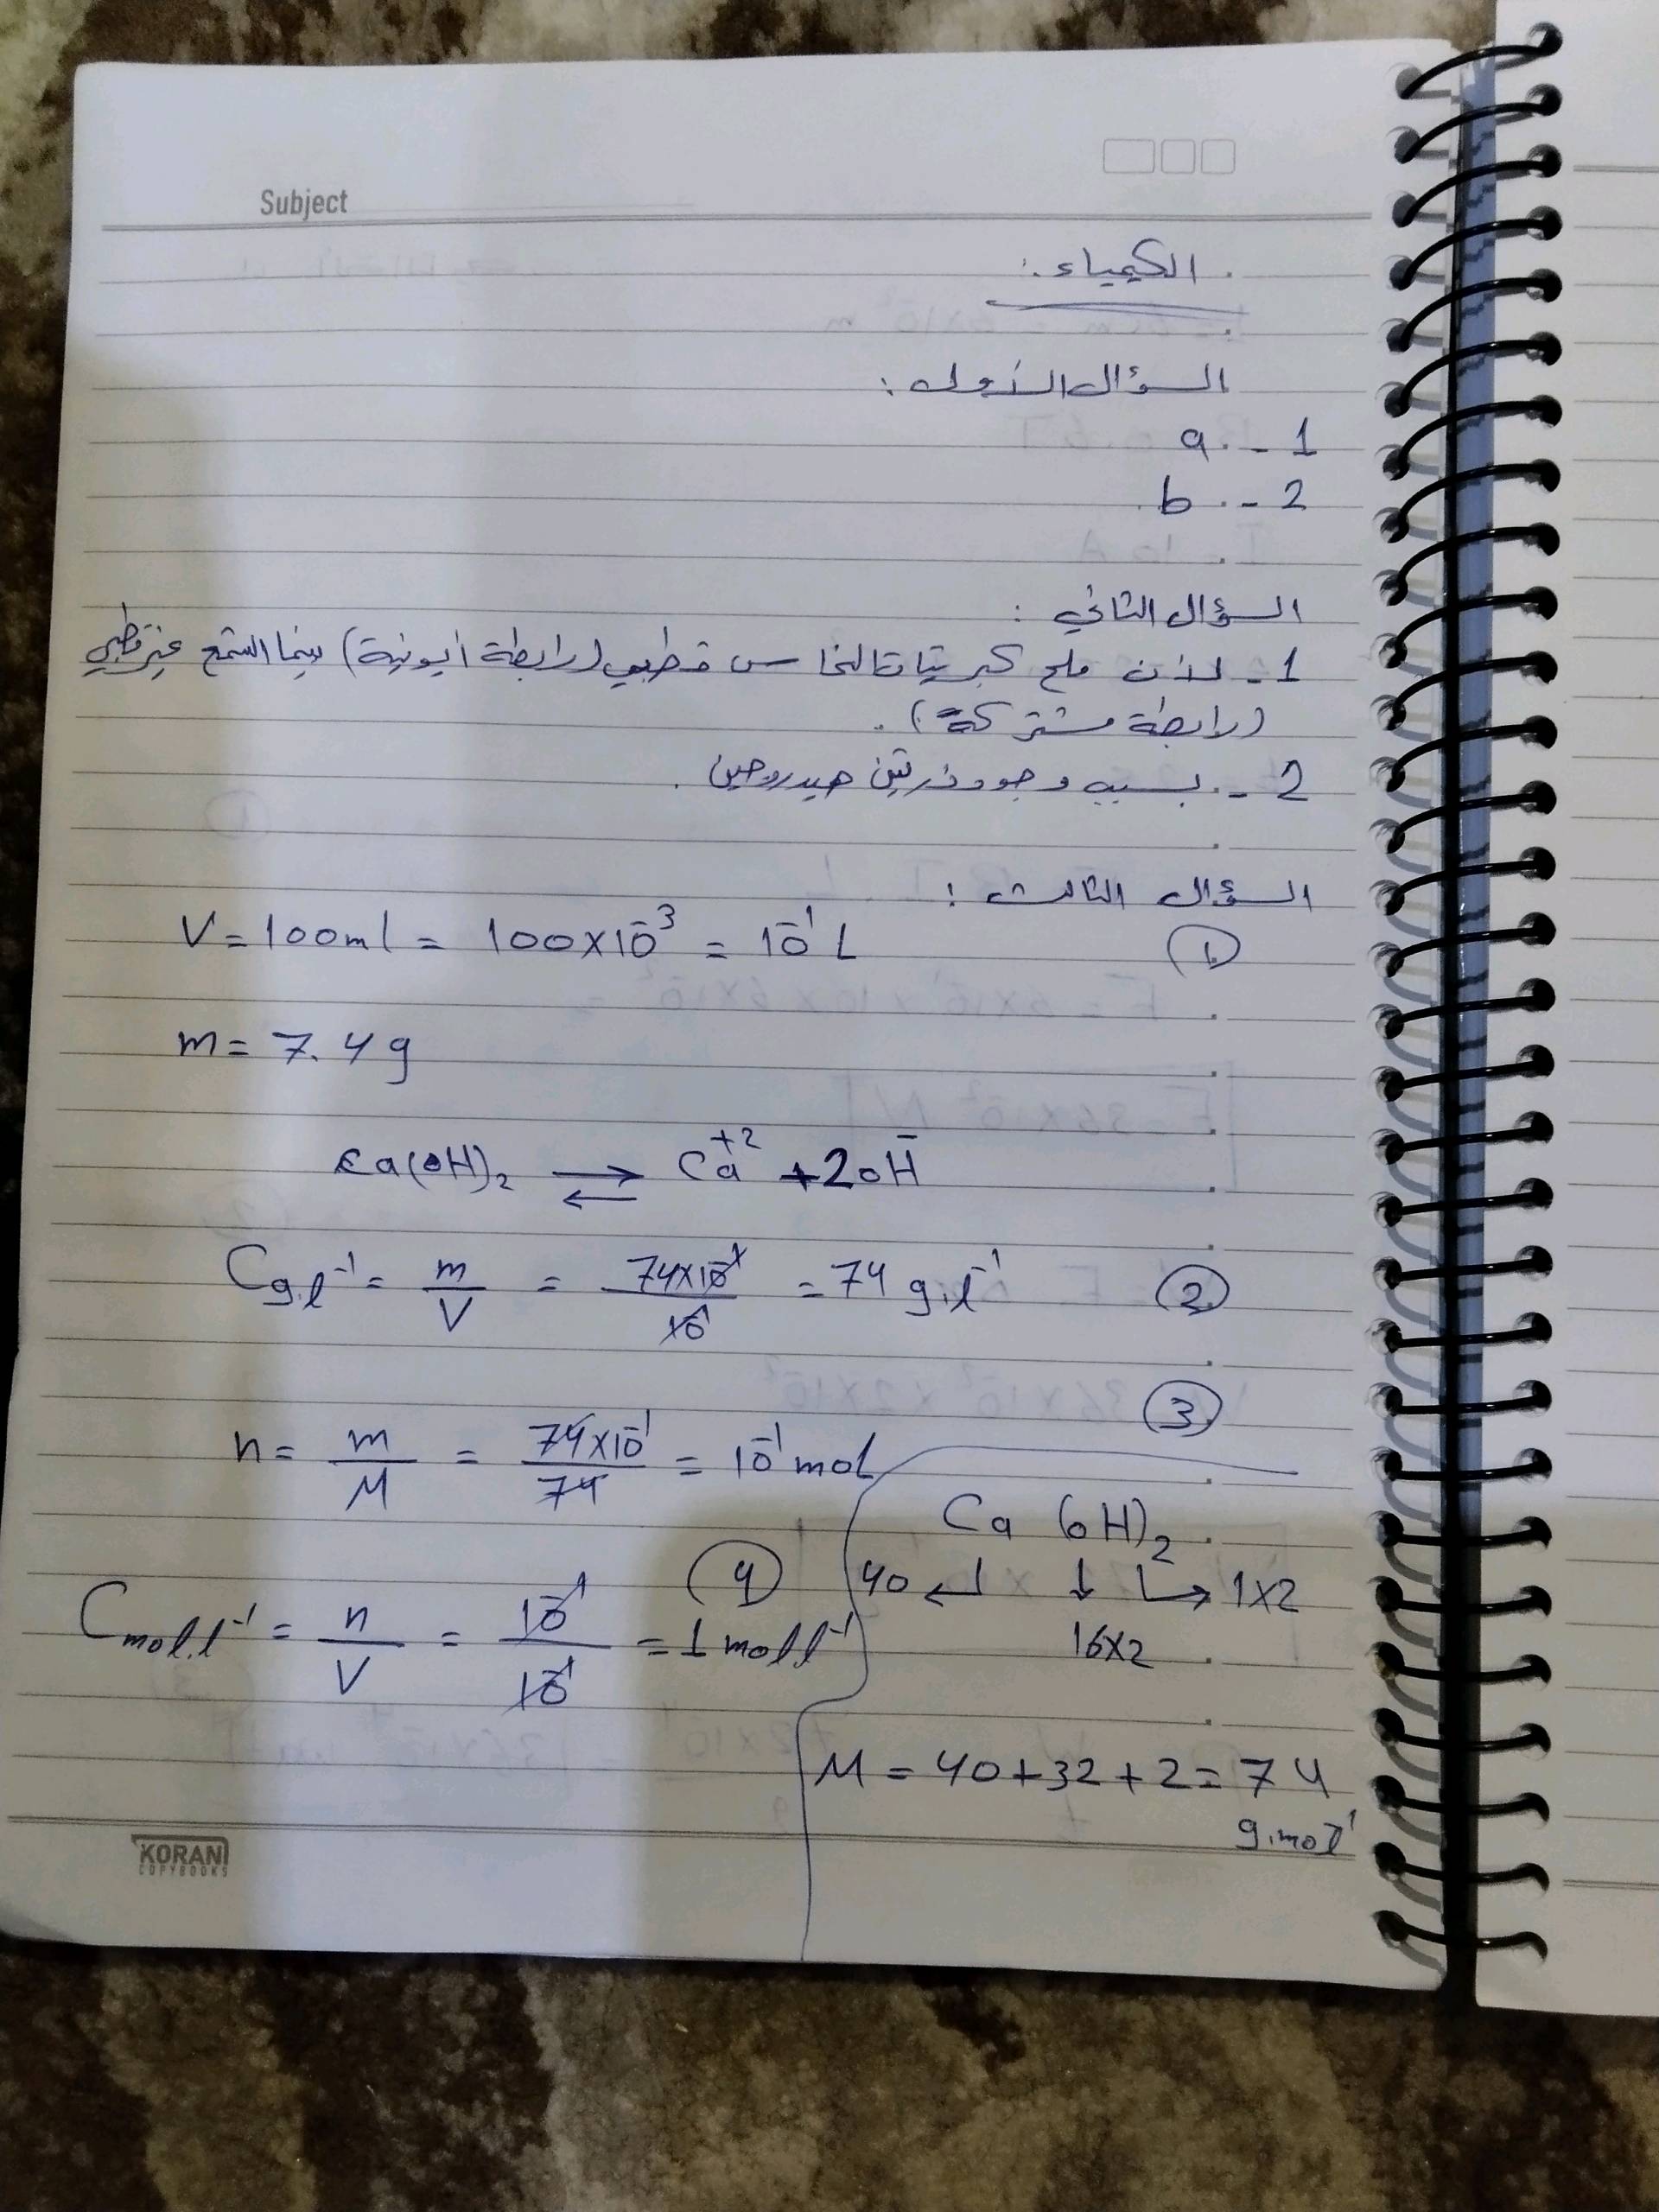 Subject
الكيمياء :
السؤال الأول :
1 - a
2 - b
السؤال الثاني :
1 - لأن ملح كبريتات النحاس قطبي (رابطة أيونية) بينما الشمع غير قطبي
(رابطة مشتركة) .
2 - بسبب وجود ذرتين هيدروجين .
السؤال الثالث :
① V = 100ml = 100×10⁻³ = 10⁻¹ L
m = 7.4 g
Ca(OH)₂ ⇌ Ca⁺² + 2OH⁻
② Cg.l⁻¹ = m/V = 74×10⁻¹/10⁻¹ = 74 g.l⁻¹
③
n = m/M = 74×10⁻¹/74 = 10⁻¹ mol
Ca (OH)₂
40 ↵ ↓ ↳ 1×2
16×2
M = 40+32+2 = 74
g.mol⁻¹
④
Cmol.l⁻¹ = n/V = 10⁻¹/10⁻¹ = 1 mol.l⁻¹
KORANI
COPYBOOKS